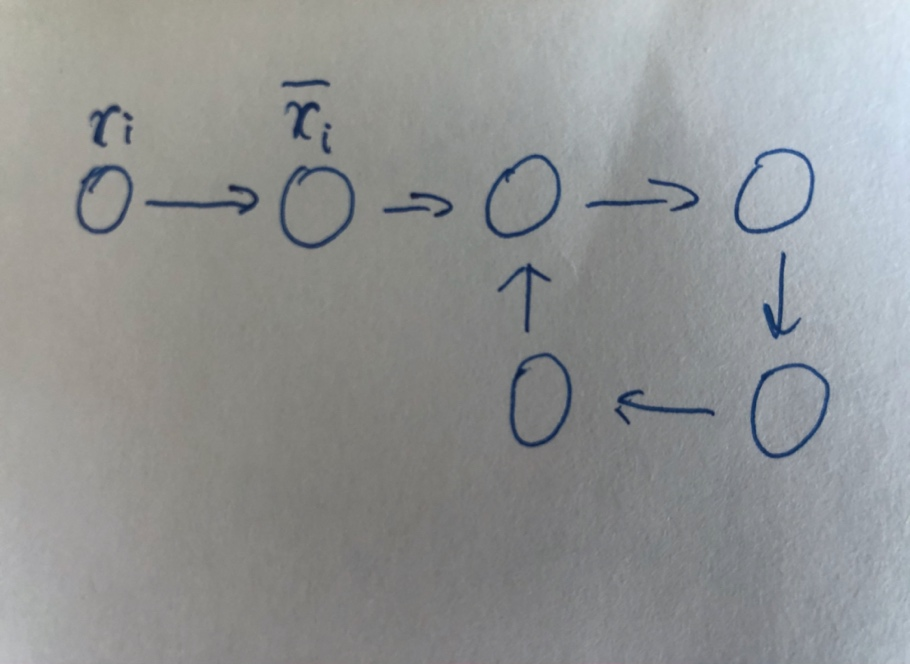 xi x̄i